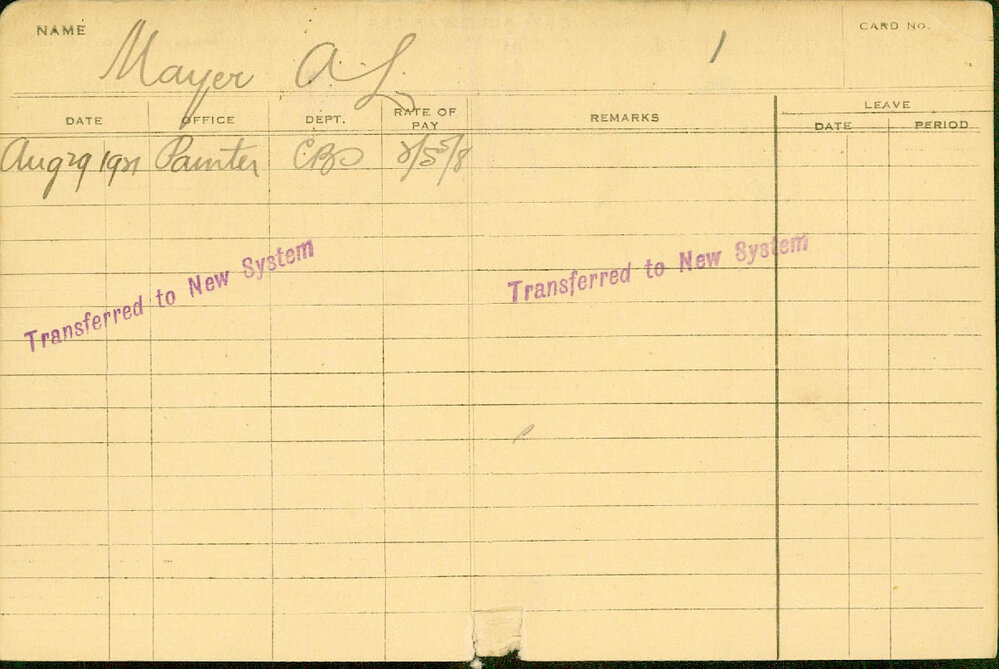 NAME Mayer A. L. 1 CARD No.
DATE OFFICE DEPT. RATE OF PAY REMARKS LEAVE
DATE PERIOD
Aug 29 1921 Painter
Transferred to New System
Transferred to New System